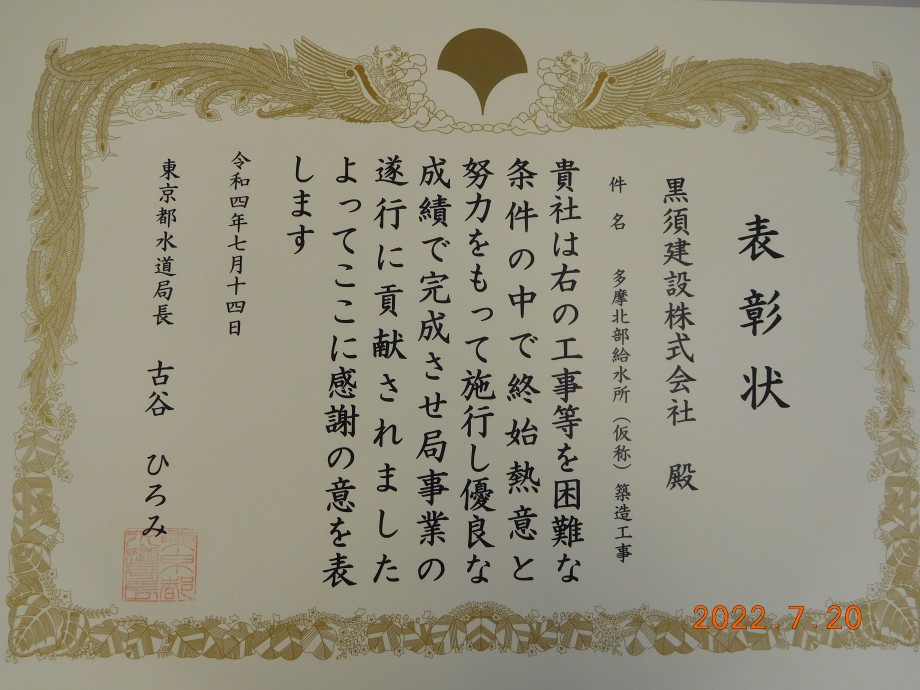 表彰状
黒須建設株式会社 殿
件名 多摩北部給水所（仮称）築造工事
貴社は右の工事等を困難な
条件の中で終始熱意と
努力をもって施行し優良な
成績で完成させ局事業の
遂行に貢献されました
よってここに感謝の意を表
します
令和四年七月十四日
東京都水道局長 古谷 ひろみ
2022.7.20